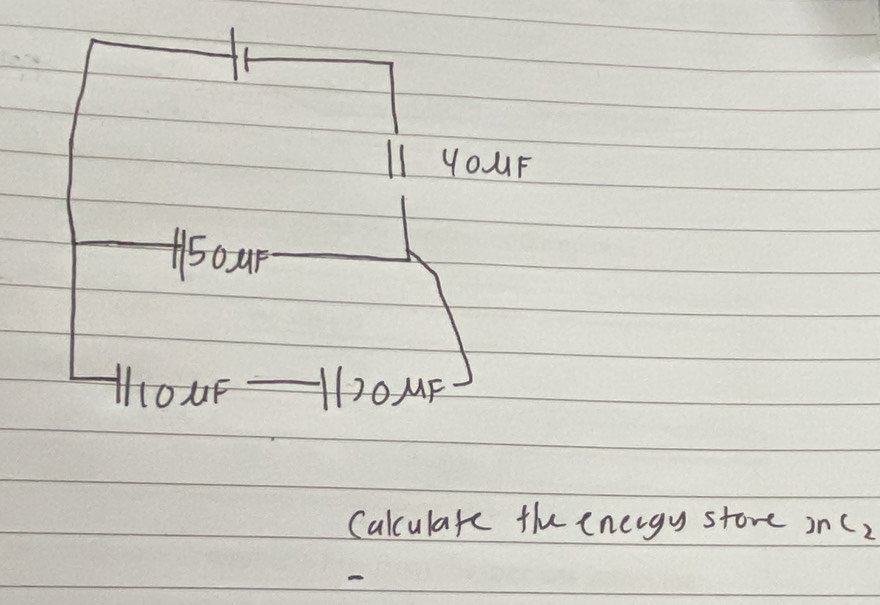 40μF
50μF
10μF
20μF
Calculate the energy store in C₂